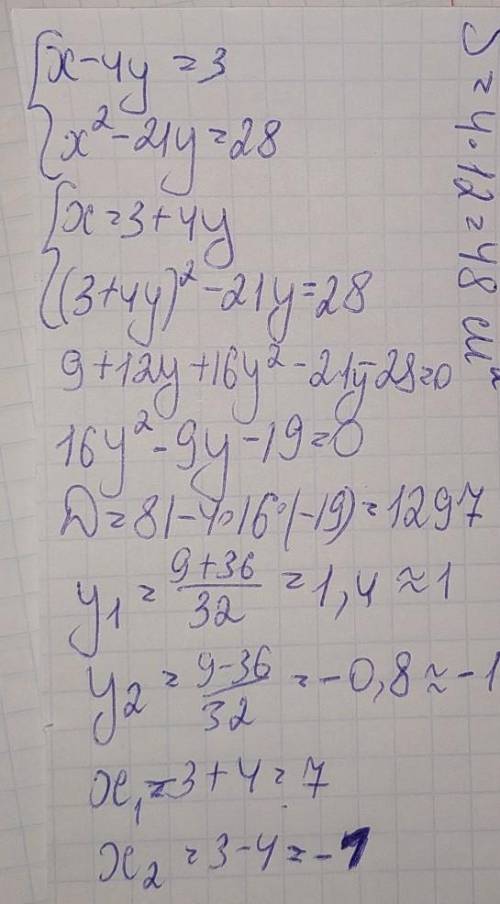 x-4y=3
x²-21y=28
x=3+4y
(3+4y)²-21y=28
9+12y+16y²-21y-28=0
16y²-9y-19=0
D=81-4·16·(-19)=1297
y₁=(9+36)/32=1,4≈1
y₂=(9-36)/32=-0,8≈-1
x₁=3+4=7
x₂=3-4=-1
S=4·12=48 см²